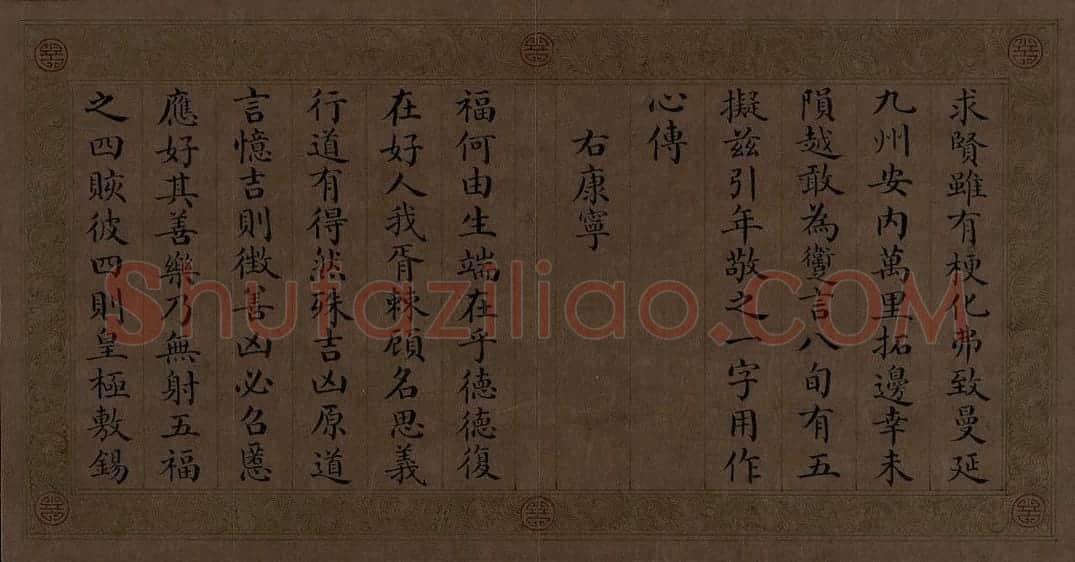 求賢雖有梗化弗致蔓延
九州安內萬里拓邊幸未
隕越敢為讆言八旬有五
擬茲引年敬之一字用作
心傳
右康寧
福何由生端在乎德德復
在好人我胥棘顧名思義
行道有得然殊吉凶原道
言憶吉則徴善凶必名慝
應好其善樂乃無射五福
之四賅彼四則皇極敷錫
Shufaziliao.COM